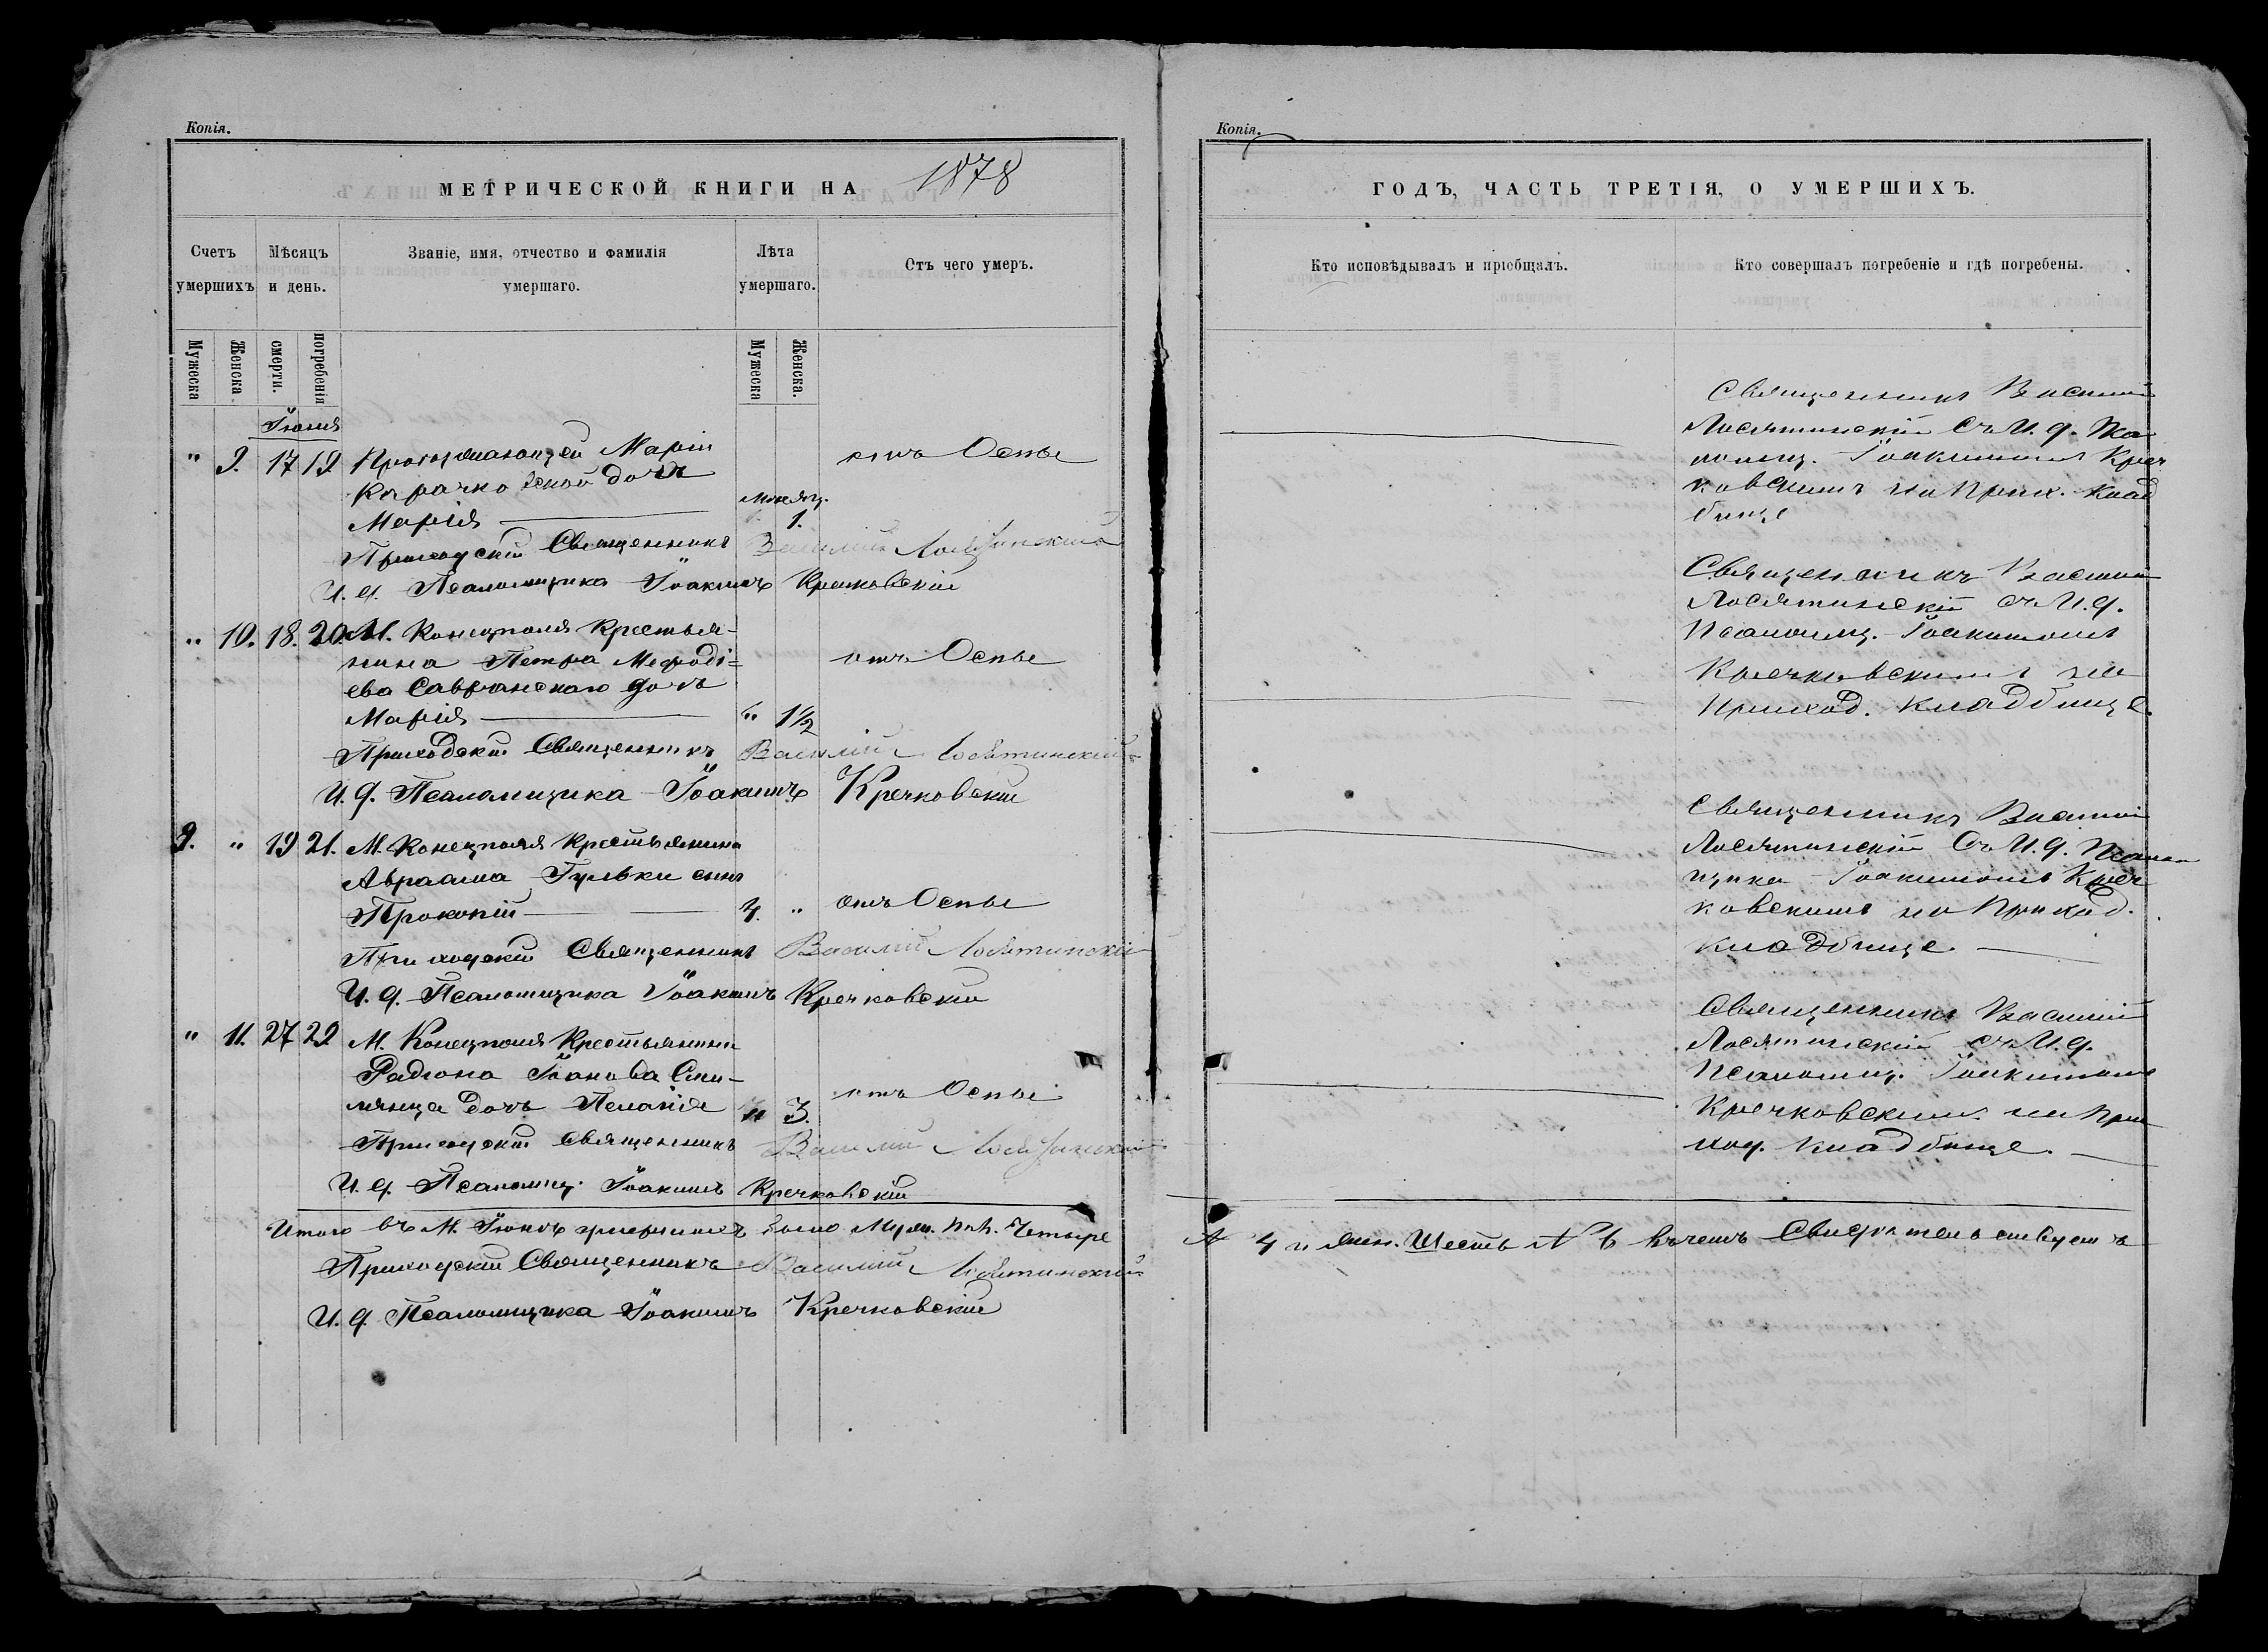 Копія.
МЕТРИЧЕСКОЙ КНИГИ НА 1878
Счетъ умершихъ
Мѣсяцъ и день.
Званіе, имя, отчество и фамилія умершаго.
Лѣта умершаго.
Отъ чего умеръ.
Мужеска
Женска.
смерти.
погребенія
Мужеска
Женска.
Іюня
" 9. 17 19 Маріи отъ Оспы
дочь
месяц.
Марія 1.
Приходскій Священникъ Василій Лосятинскій
И. д. Псаломщика Іоакимъ Кречковскій
" 10. 18. 20. М. Конецполя Крестья-
нина Петра Мефоді= отъ Оспы
ева Савранскаго дочь
Марія " 1½
Приходскій Священникъ Василій Лосятинскій
И. д. Псаломщика Іоакимъ Кречковскій
9. " 19 21. М. Конецполя Крестьянина
Авраама Гульки сынъ
Прокопій 4. " отъ Оспы
Приходскій Священникъ Василій Лосятинскій
И. д. Псаломщика Іоакимъ Кречковскій
" 11. 27 29 М. Конецполя Крестьянина
Радіона
дочь Пелагія " 3. отъ Оспы
Приходскій Священникъ Василій Лосятинскій
И. д. Псаломщ. Іоакимъ Кречковскій
Итого въ М. Іюнѣ умершихъ было Муж. пол. Четыре
Приходскій Священникъ Василій Лосятинскій
И. д. Псаломщика Іоакимъ Кречковскій
Копія.
ГОДЪ, ЧАСТЬ ТРЕТІЯ, О УМЕРШИХЪ.
Кто исповѣдывалъ и пріобщалъ.
Кто совершалъ погребеніе и гдѣ погребены.
Священникъ Василій
Лосятинскій съ И. д. Пса
ломщ. Іоакимомъ Креч
ковскимъ на Прих. Клад
бище
Священникъ Василій
Лосятинскій съ И. д.
Псаломщ. Іоакимомъ
Кречковскимъ на
Приход. Кладбище.
Священникъ Василій
Лосятинскій съ И. д. Псалом
щика Іоакимомъ Креч
ковскимъ на Приход.
Кладбище.
Священникъ Василій
Лосятинскій съ И. д.
Псаломщ. Іоакимомъ
Кречковскимъ на При
ход. Кладбище.
4 и жен. Шесть № 6 въ чемъ Свидѣтельствуемъ